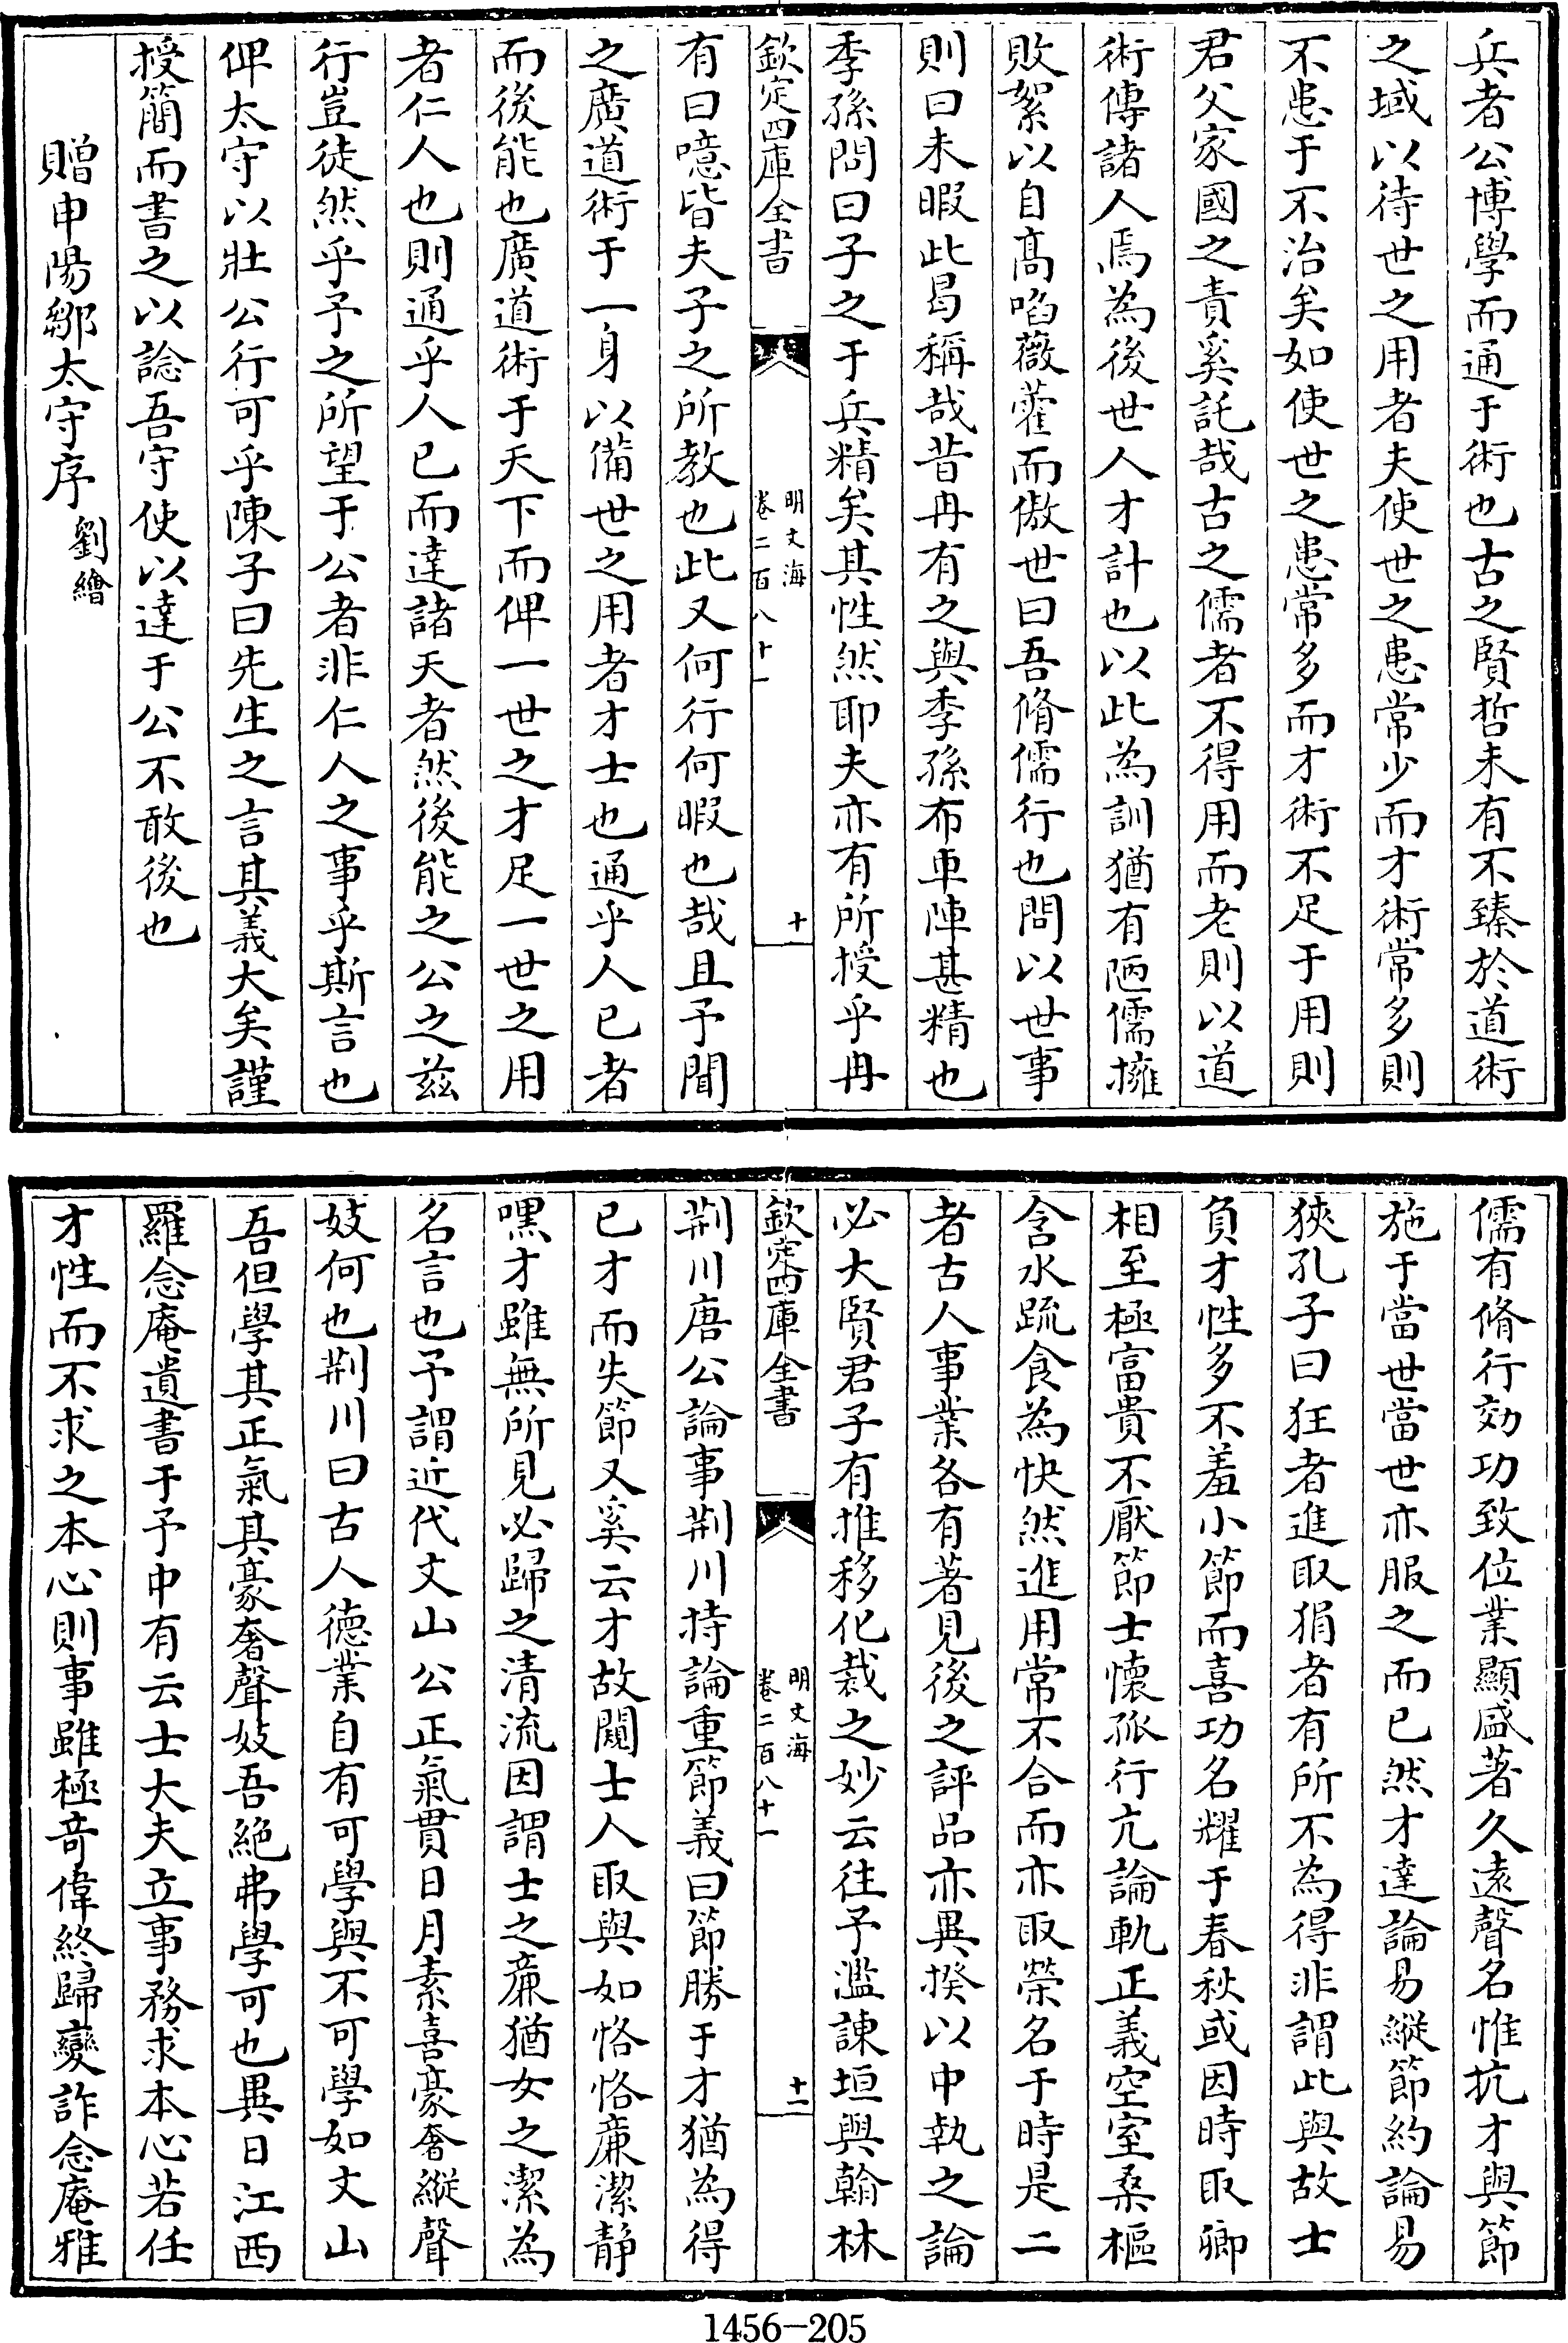 兵者公博學而通于術也古之賢哲未有不臻於道術
之域以待世之用者夫使世之患常少而才術常多則
不患于不治矣如使世之患常多而才術不足于用則
君父家國之責奚託哉古之儒者不得用而老則以道
術傳諸人焉為後世人才計也以此為訓猶有陋儒擁
敗絮以自高啗薇藿而傲世曰吾脩儒行也問以世事
則曰未暇此曷稱哉昔冉有之與季孫布車陣甚精也
季孫問曰子之于兵精矣其性然耶夫亦有所授乎冉
欽定四庫全書
明文海
卷二百八十一
十一
有曰噫皆夫子之所教也此又何行何暇也哉且予聞
之廣道術于一身以備世之用者才士也通乎人已者
而後能也廣道術于天下而俾一世之才足一世之用
者仁人也則通乎人已而達諸天者然後能之公之茲
行豈徒然乎予之所望于公者非仁人之事乎斯言也
俾太守以壯公行可乎陳子曰先生之言其義大矣謹
授簡而書之以諗吾守使以達于公不敢後也
贈申陽鄒太守序 劉繪
儒有脩行効功致位業顯盛著久遠聲名惟抗才與節
施于當世當世亦服之而已然才達論易縱節約論易
狹孔子曰狂者進取狷者有所不為得非謂此與故士
負才性多不羞小節而喜功名耀于春秋或因時取卿
相至極富貴不厭節士懷孤行亢論軌正義空室桑樞
含水疏食為快然進用常不合而亦取榮名于時是二
者古人事業各有著見後之評品亦異揆以中執之論
必大賢君子有推移化裁之妙云往予濫諫垣與翰林
欽定四庫全書
明文海
卷二百八十一
十二
荆川唐公論事荆川持論重節義曰節勝于才猶為得
已才而失節又奚云才故闒士人取與如恪恪㢘潔静
嘿才雖無所見必歸之清流因謂士之㢘猶女之潔為
名言也予謂近代文山公正氣貫日月素喜豪奢縱聲
妓何也荆川曰古人德業自有可學與不可學如文山
吾但學其正氣其豪奢聲妓吾絶弗學可也異日江西
羅念庵遺書于予中有云士大夫立事務求本心若任
才性而不求之本心則事雖極奇偉終歸變詐念庵雅
1456-205